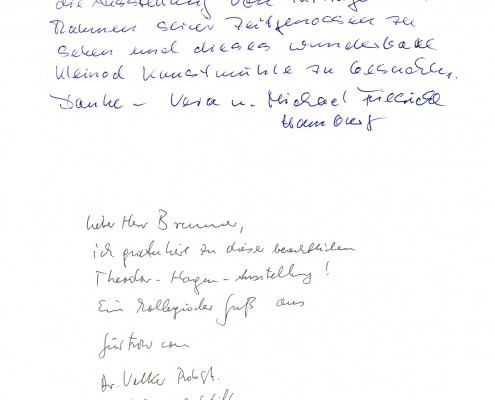 die Ausstellung von
Rahmen seiner Zeitgenossen zu
sehen und dieses wunderbare
Kleinod Kunstmühle zu besuchen.
Danke – Vera u. Michael
Hamburg
Lieber Herr Brunner,
ich gratuliere zu dieser beachtlichen
Theodor-Hagen-Ausstellung!
Ein kollegialer Gruß aus
Güstrow von
Dr. Volker Probst.